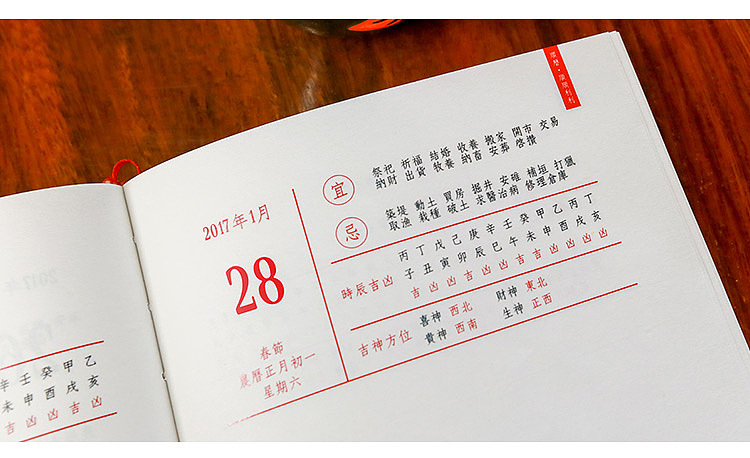 2017年1月
28
春節
農曆正月初一
星期六
宜
祭祀 祈福 結婚 收養 搬家 開市 交易
納財 出貨 牧養 納畜 安葬 啓攢
忌
築堤 動土 買房 掘井 安碓 補垣 打獵
取漁 栽種 破土 求醫治病 修理倉庫
時辰吉凶
丙 丁 戊 己 庚 辛 壬 癸 甲 乙 丙 丁
子 丑 寅 卯 辰 巳 午 未 申 酉 戌 亥
吉 凶 凶 吉 凶 凶 吉 吉 凶 凶 凶 凶
吉神方位
喜神 西北 財神 東北
貴神 西南 生神 正西
辛 壬 癸 甲 乙
未 申 酉 戌 亥
吉 凶 凶 吉 凶